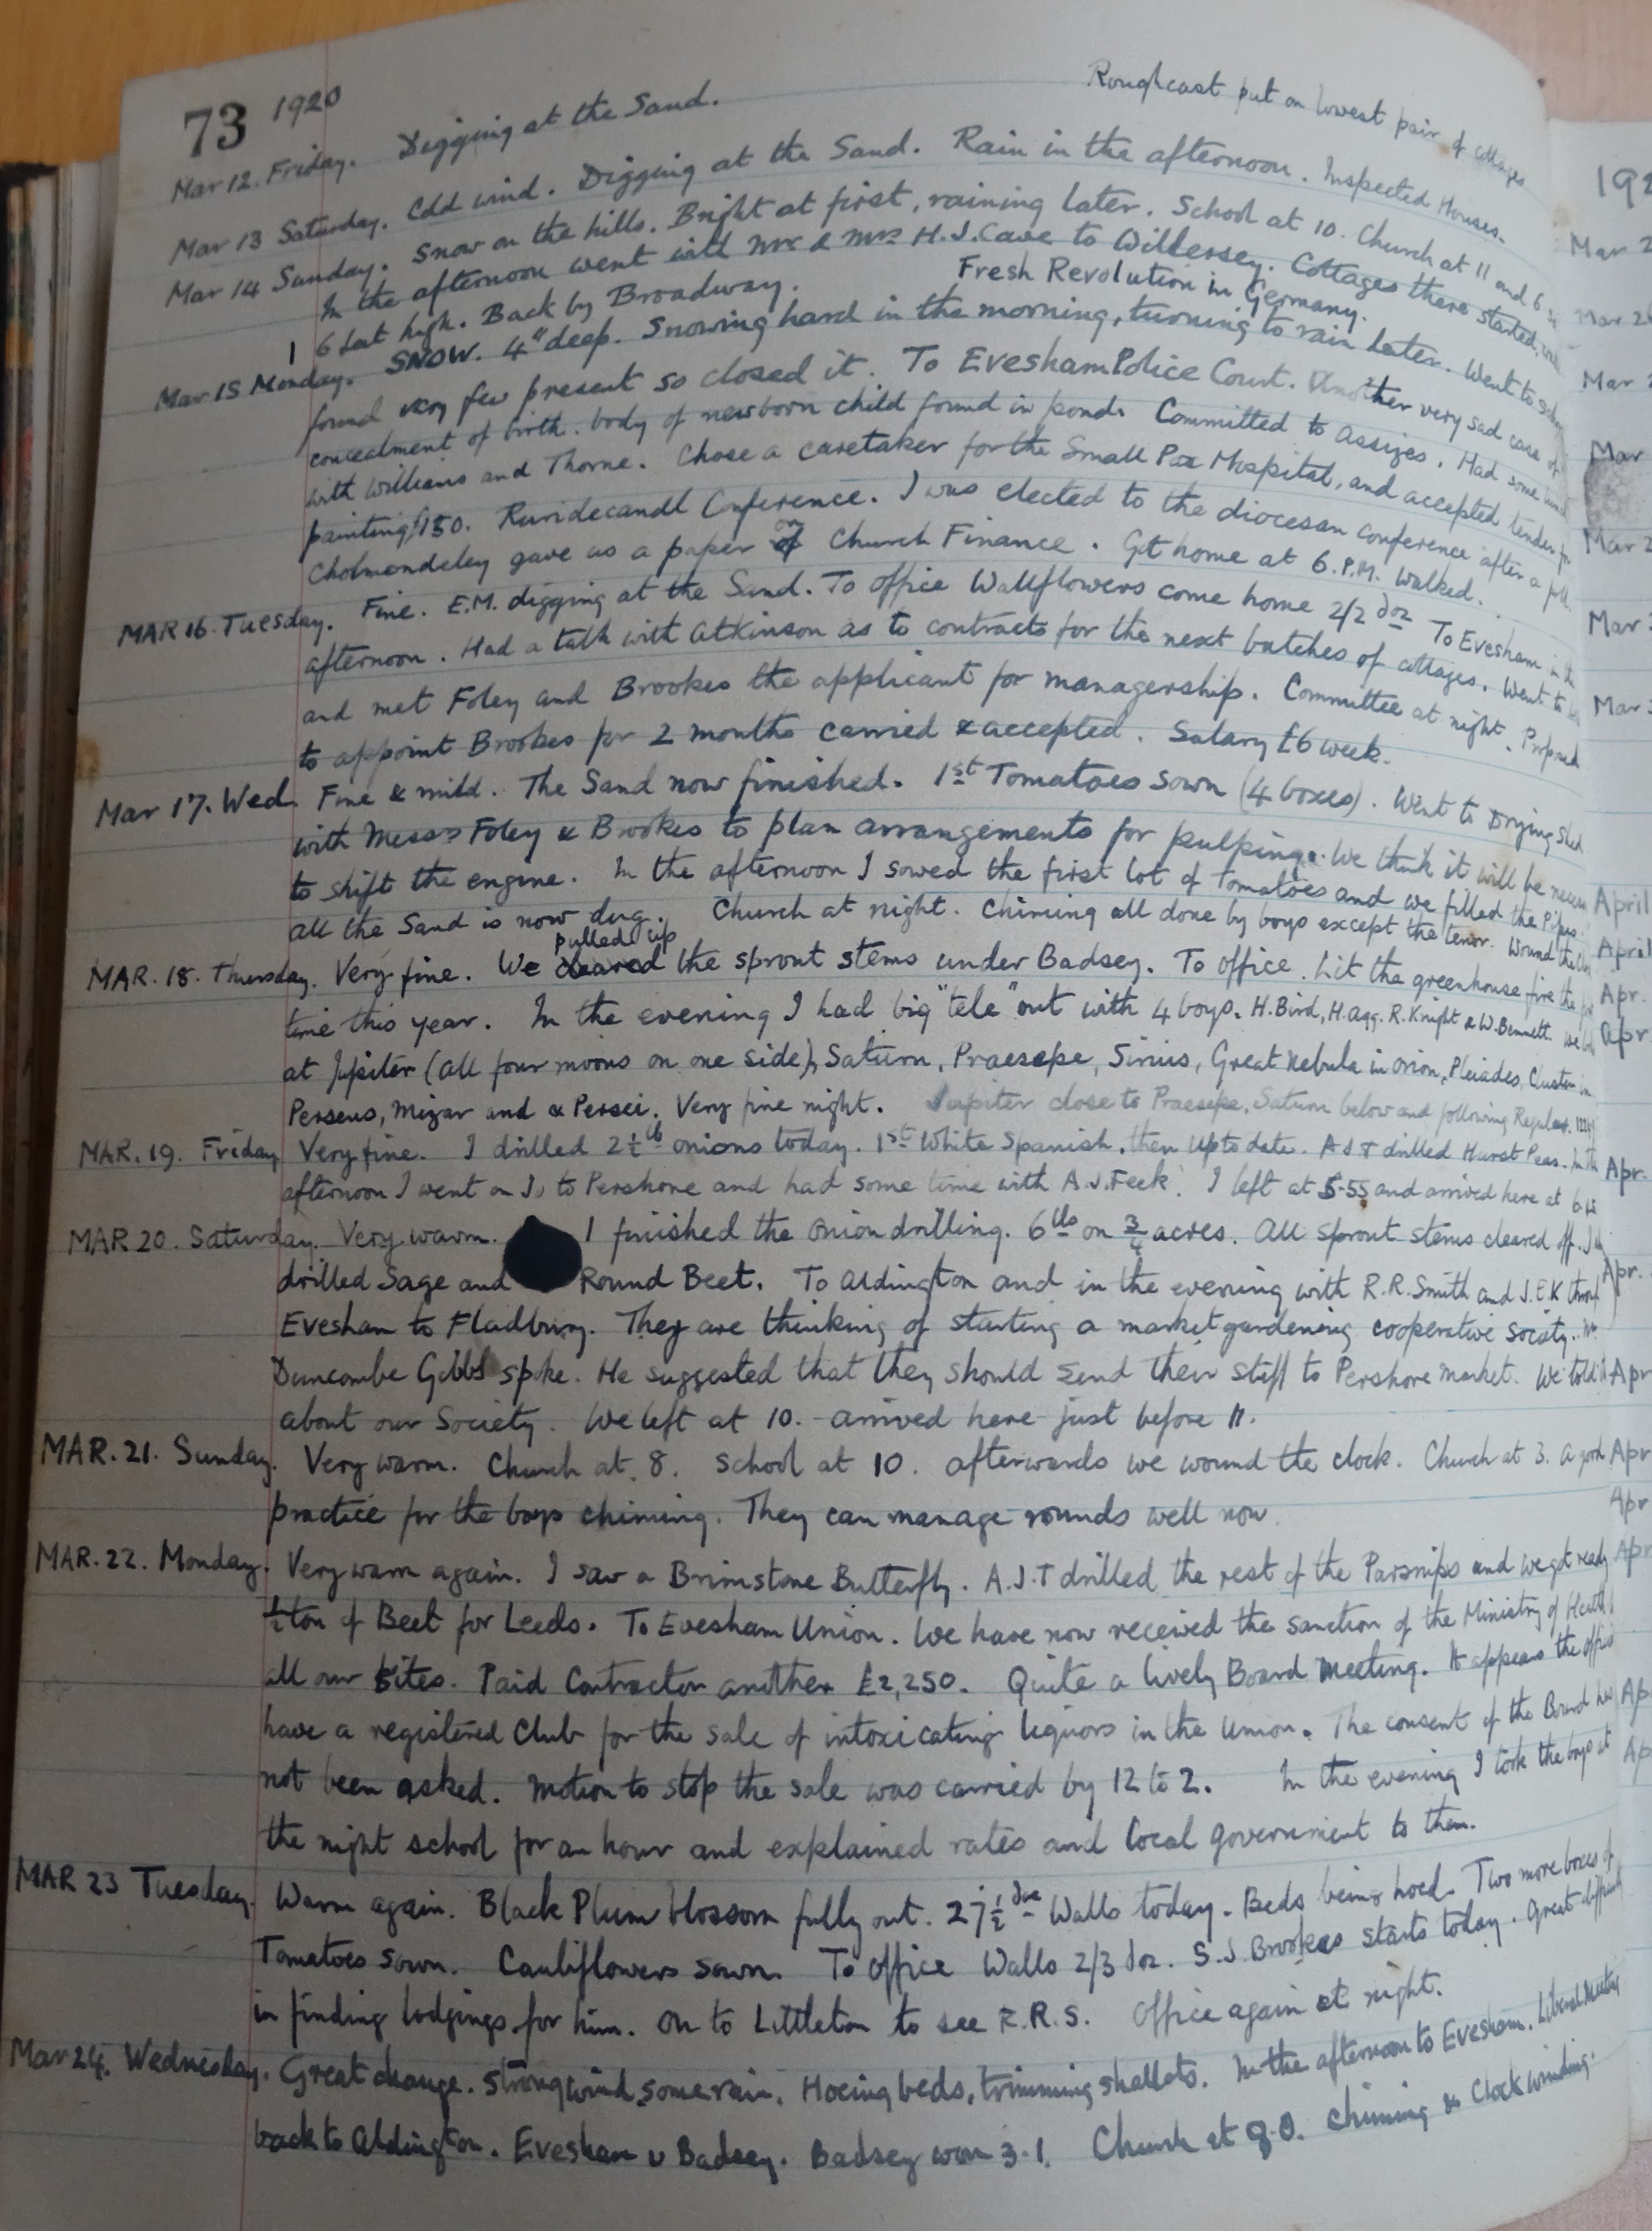 73 1920
Roughcast put on lowest pair of cottages
Mar 12. Friday. Digging at the Sand.
Mar 13 Saturday. Cold wind. Digging at the Sand. Rain in the afternoon. Inspected Houses.
Mar 14 Sunday. Snow on the hills. Bright at first, raining later. School at 10. Church at 11 and 6.
In the afternoon went with Mr & Mrs H.J. Cave to Willersey. Cottages there started,
6 feet high. Back by Broadway. Fresh Revolution in Germany.
Mar 15 Monday. SNOW. 4" deep. Snowing hard in the morning, turning to rain later. Went to
found very few present so closed it. To Evesham Police Court. Another very sad case of
concealment of birth. body of newborn child found in pond. Committed to Assizes. Had some
with Williams and Thorne. Chose a caretaker for the Small Pox Hospital, and accepted tender for
painting £150. Ruridecanal Conference. I was elected to the diocesan conference after a
Cholmondeley gave us a paper on Church Finance. Got home at 6. P.M. Walked.
MAR 16. Tuesday. Fine. E.M. digging at the Sand. To office Wallflowers come home 2/2 doz To Evesham in the
afternoon. Had a talk with Atkinson as to contracts for the next batches of cottages. Went to
and met Foley and Brookes the applicant for managership. Committee at night. Proposed
to appoint Brookes for 2 months carried & accepted. Salary £6 week.
Mar 17. Wed. Fine & mild. The Sand now finished. 1st Tomatoes sown (4 boxes). Went to Drying Shed
with Messrs Foley & Brookes to plan arrangements for pulping. We think it will be
to shift the engine. In the afternoon I sowed the first lot of Tomatoes and we filled the Pipes.
all the Sand is now dug. Church at night. Chiming all done by boys except the tenor. Wound the
pulled up
MAR. 18. Thursday. Very fine. We cleared the sprout stems under Badsey. To office. Lit the greenhouse fire the
time this year. In the evening I had big "tele" out with 4 boys. H. Bird, H. Agg. R. Knight & W. Bennett. We
at Jupiter (all four moons on one side), Saturn, Praesepe, Sirius, Great Nebula in Orion, Pleiades, Cluster in
Perseus, Mizar and α Persei. Very fine night. Jupiter close to Praesepe, Saturn below and following Regulus.
MAR. 19. Friday Very fine. I drilled 2½ lb onions today. 1st White Spanish, then Up to date. A J T drilled Hurst Peas. In the
afternoon I went on J. to Pershore and had some time with A.J. Feek. I left at 5-55 and arrived here at
MAR 20. Saturday. Very warm. I finished the Onion drilling. 6 lbs on 3/4 acres. All sprout stems cleared off. I
drilled Sage and Round Beet. To Aldington and in the evening with R.R. Smith and J.E.K through
Evesham to Fladbury. They are thinking of starting a market gardening cooperative society. Mr
Duncombe Gibbs spoke. He suggested that they should send their stuff to Pershore market. We told
about our Society. We left at 10. arrived here just before 11.
MAR. 21. Sunday. Very warm. Church at 8. School at 10. afterwards we wound the clock. Church at 3. A good
practice for the boys chiming. They can manage rounds well now.
MAR. 22. Monday. Very warm again. I saw a Brimstone Butterfly. A.J.T drilled the rest of the Parsnips and we got ready
½ ton of Beet for Leeds. To Evesham Union. We have now received the sanction of the Ministry of Health
all our sites. Paid Contractor another £2,250. Quite a lively Board Meeting. It appears the
have a registered Club for the sale of intoxicating liquors in the Union. The consent of the Board has
not been asked. Motion to stop the sale was carried by 12 to 2. In the evening I took the boys at
the night school for an hour and explained rates and local government to them.
MAR 23 Tuesday. Warm again. Black Plum blossom fully out. 27½ doz Walls today. Beds being hoed. Two more boxes of
Tomatoes sown. Cauliflowers sown. To office Walls 2/3 doz. S.J. Brookes starts today. Great
in finding lodgings for him. On to Littleton to see R.R.S. Office again at night.
Mar 24. Wednesday. Great change. Strong wind, some rain. Hoeing beds, trimming shallots. In the afternoon to Evesham. Liberal Meeting
back to Aldington. Evesham v Badsey. Badsey won 3-1. Church at Chiming & Clock winding.
192
Mar 2
Mar
Mar
Mar
Mar 2
Mar
Mar
April
April
Apr.
Apr
Apr.
Apr.
Apr
Apr
Apr
Apr
Ap
Ap